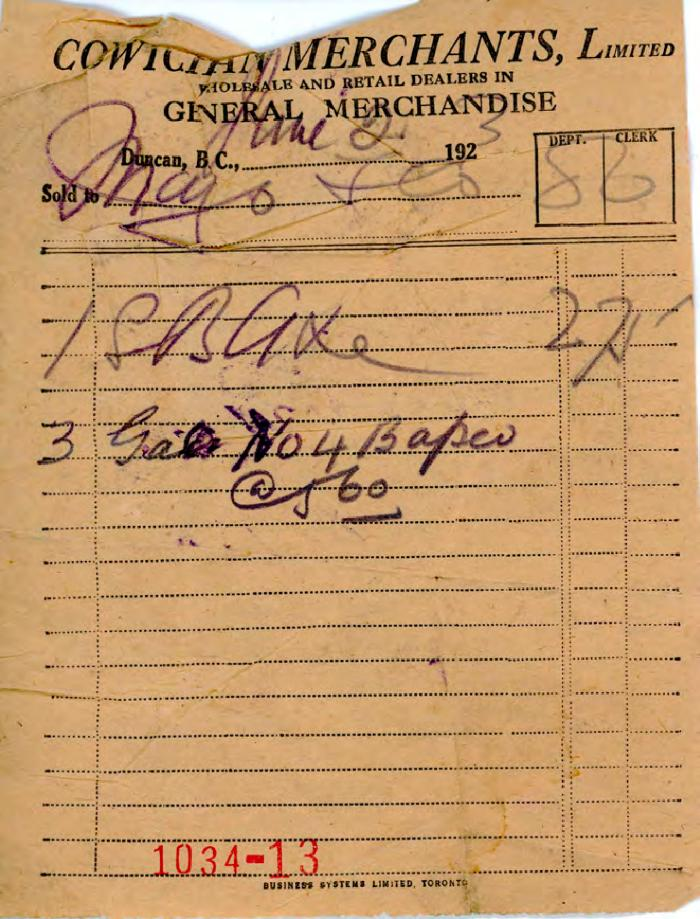 COWICHAN MERCHANTS, LIMITED
WHOLESALE AND RETAIL DEALERS IN
GENERAL MERCHANDISE
Duncan, B.C., June 2. 1923
DEPT. CLERK
56
Sold to Mayo & Co
1 SB Axe 275
3 Gals No 4 Bapco
@ 5 60
1034-13
BUSINESS SYSTEMS LIMITED, TORONTO